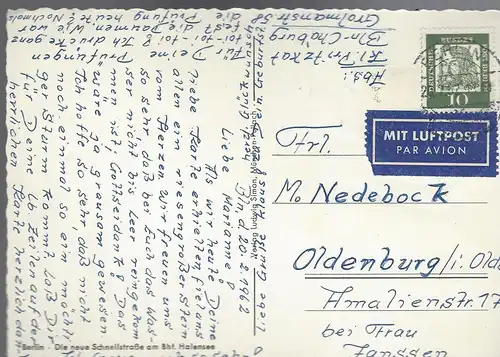 Abs.:
Kl. Przezkat
Bln-Chburg
Grolmanstr. 58
Für Deine Prüfungen
toi-toi-toi! Ich drücke ganz
fest die Daumen. Wie war
die Prüfung heute? Nochmals
Bln. d. 20.2.1962
Liebe Marianne!
Als wir heute Deine
liebe Karte erhielten fiel uns
allen ein riesengroßer Stein
vom Herzen. Wir freuen uns
so sehr, daß bei Euch das Was-
ser nicht bis Leer reingekom-
men ist, Gottseidank! Das
wäre ja grausam gewesen
Ich hoffe so sehr, daß nicht
noch einmal so ein mächti-
ger Sturm kommt. Laß Dir
für Deine lb. Zeilen auf der
Karte herzlich
herzlichen
Liebe Grüße Klaus
Verlag Ludwig Simon, München-Pullach
Berlin - Die neue Schnellstraße am Bhf. Halensee
DEUTSCHE BUNDESPOST
10
MIT LUFTPOST
PAR AVION
Frl.
M. Nedebock
Oldenburg/i. Old
Amalienstr. 17
bei Frau
Janssen